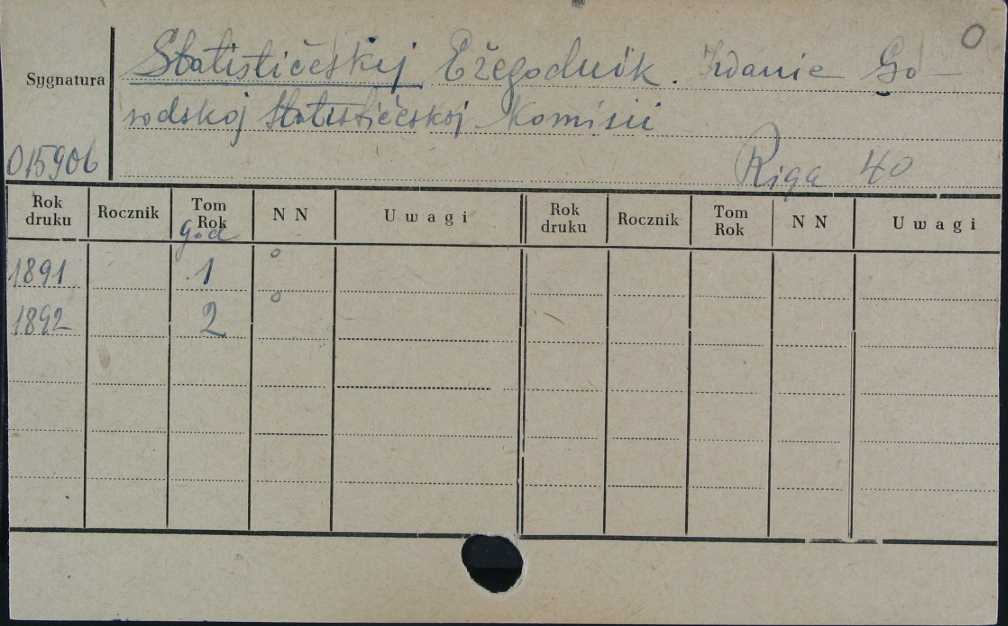 O
Sygnatura
Statističeskij Ežegodnik. Izdanie Go-
rodskoj Statističeskoj Komisii
015906
Riga 40
Rok druku Rocznik Tom Rok N N Uwagi Rok druku Rocznik Tom Rok N N Uwagi
god
1891 1 o
1892 2 o